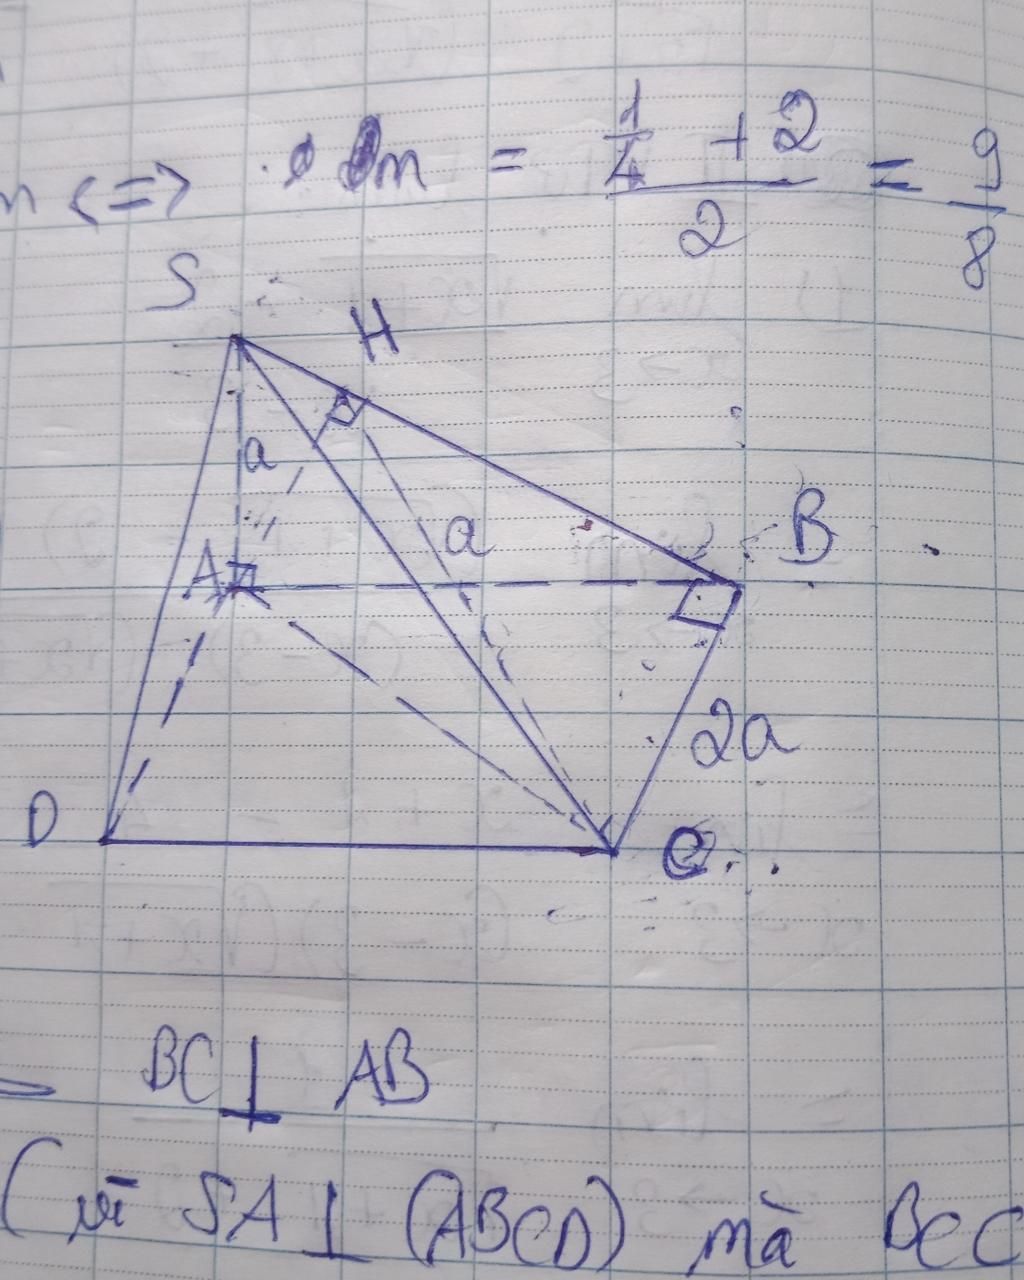 n <=> m = (1/4 + 2)/2 = 9/8
S
H
a
a
B
A
2a
D
C
= BC ⊥ AB
(vì SA ⊥ (ABCD) mà BC C